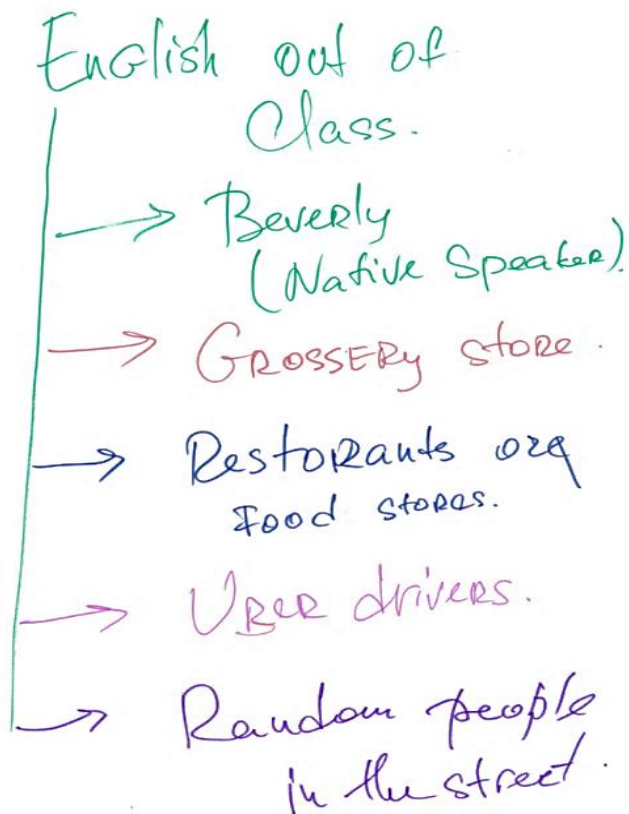 English out of
Class.
Beverly
(Native Speaker).
Grossery store.
Restorants
Food stores.
Uber drivers.
Random people
in the street.